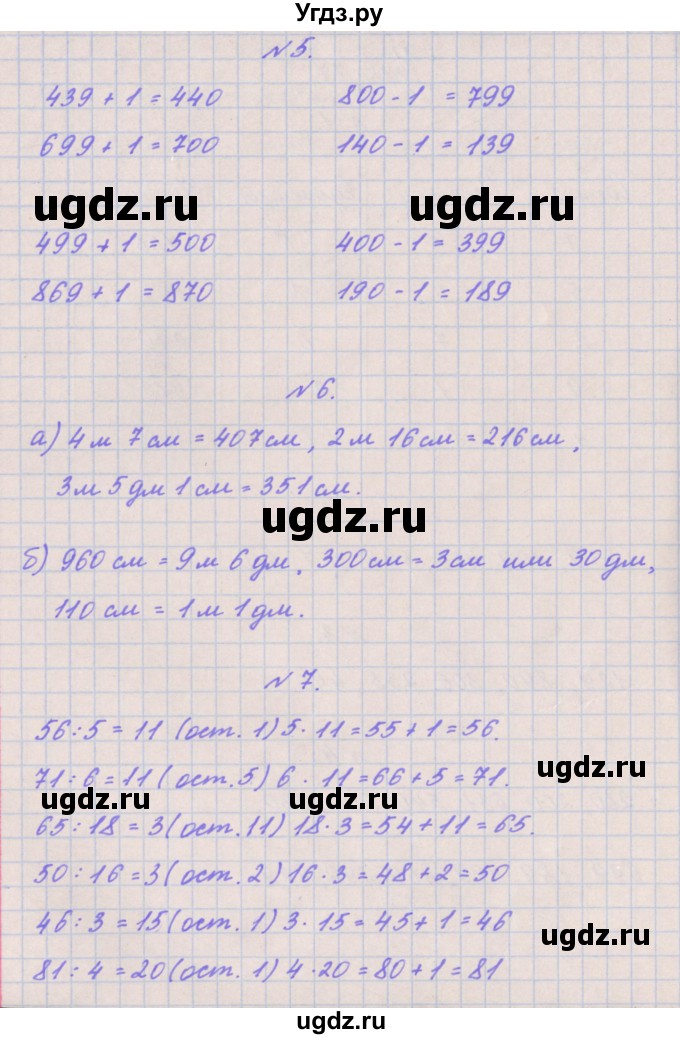 Угдз.ру
№5.
439 + 1 = 440 800 - 1 = 799
699 + 1 = 700 140 - 1 = 139
ugdz.ru ugdz.ru
499 + 1 = 500 400 - 1 = 399
869 + 1 = 870 190 - 1 = 189
№6.
а) 4 м 7 см = 407 см, 2 м 16 см = 216 см,
3 м 5 дм 1 см = 351 см.
ugdz.ru
б) 960 см = 9 м 6 дм, 300 см = 3 см или 30 дм,
110 см = 1 м 1 дм.
№7.
56 : 5 = 11 (ост. 1) 5 · 11 = 55 + 1 = 56.
ugdz.ru
71 : 6 = 11 (ост. 5) 6 · 11 = 66 + 5 = 71.
ugdz.ru ugdz.ru
65 : 18 = 3 (ост. 11) 18 · 3 = 54 + 11 = 65.
50 : 16 = 3 (ост. 2) 16 · 3 = 48 + 2 = 50
46 : 3 = 15 (ост. 1) 3 · 15 = 45 + 1 = 46
ugdz.ru
81 : 4 = 20 (ост. 1) 4 · 20 = 80 + 1 = 81
ugdz.ru